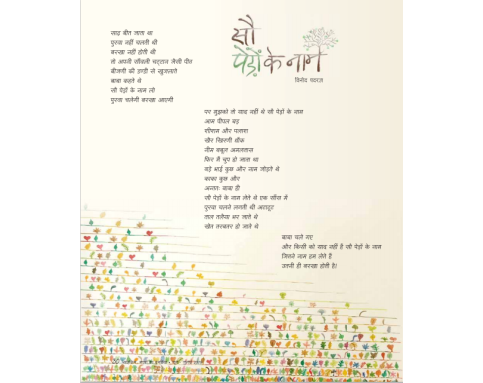 सौ
पेड़ों के नाम
विनोद पदरज
जाड़ बीत जाता था
पुरवा नहीं चलती थी
बरखा नहीं होती थी
तो अपनी साँवली चट्टान जैसी पीठ
बीजणी की डाण्डी से खुजलाते
बाबा कहते थे
सौ पेड़ों के नाम लो
पुरवा चलेगी बरखा आएगी
पर मुझको तो याद नहीं थे सौ पेड़ों के नाम
आम पीपल बड़
शीशम और पलाश
खैर खिरणी धोंक
नीम बबूल अमलतास
फिर मैं चुप हो जाता था
बड़े भाई कुछ और नाम जोड़ते थे
काका कुछ और
अन्ततः बाबा ही
सौ पेड़ों के नाम लेते थे एक साँस में
पुरवा चलने लगती थी
ताल तलैया भर जाते थे
खेत तरबतर हो जाते थे
बाबा चले गए
और किसी को याद नहीं है सौ पेड़ों के नाम
जितने नाम हम लेते हैं
उतनी ही बरखा होती है।